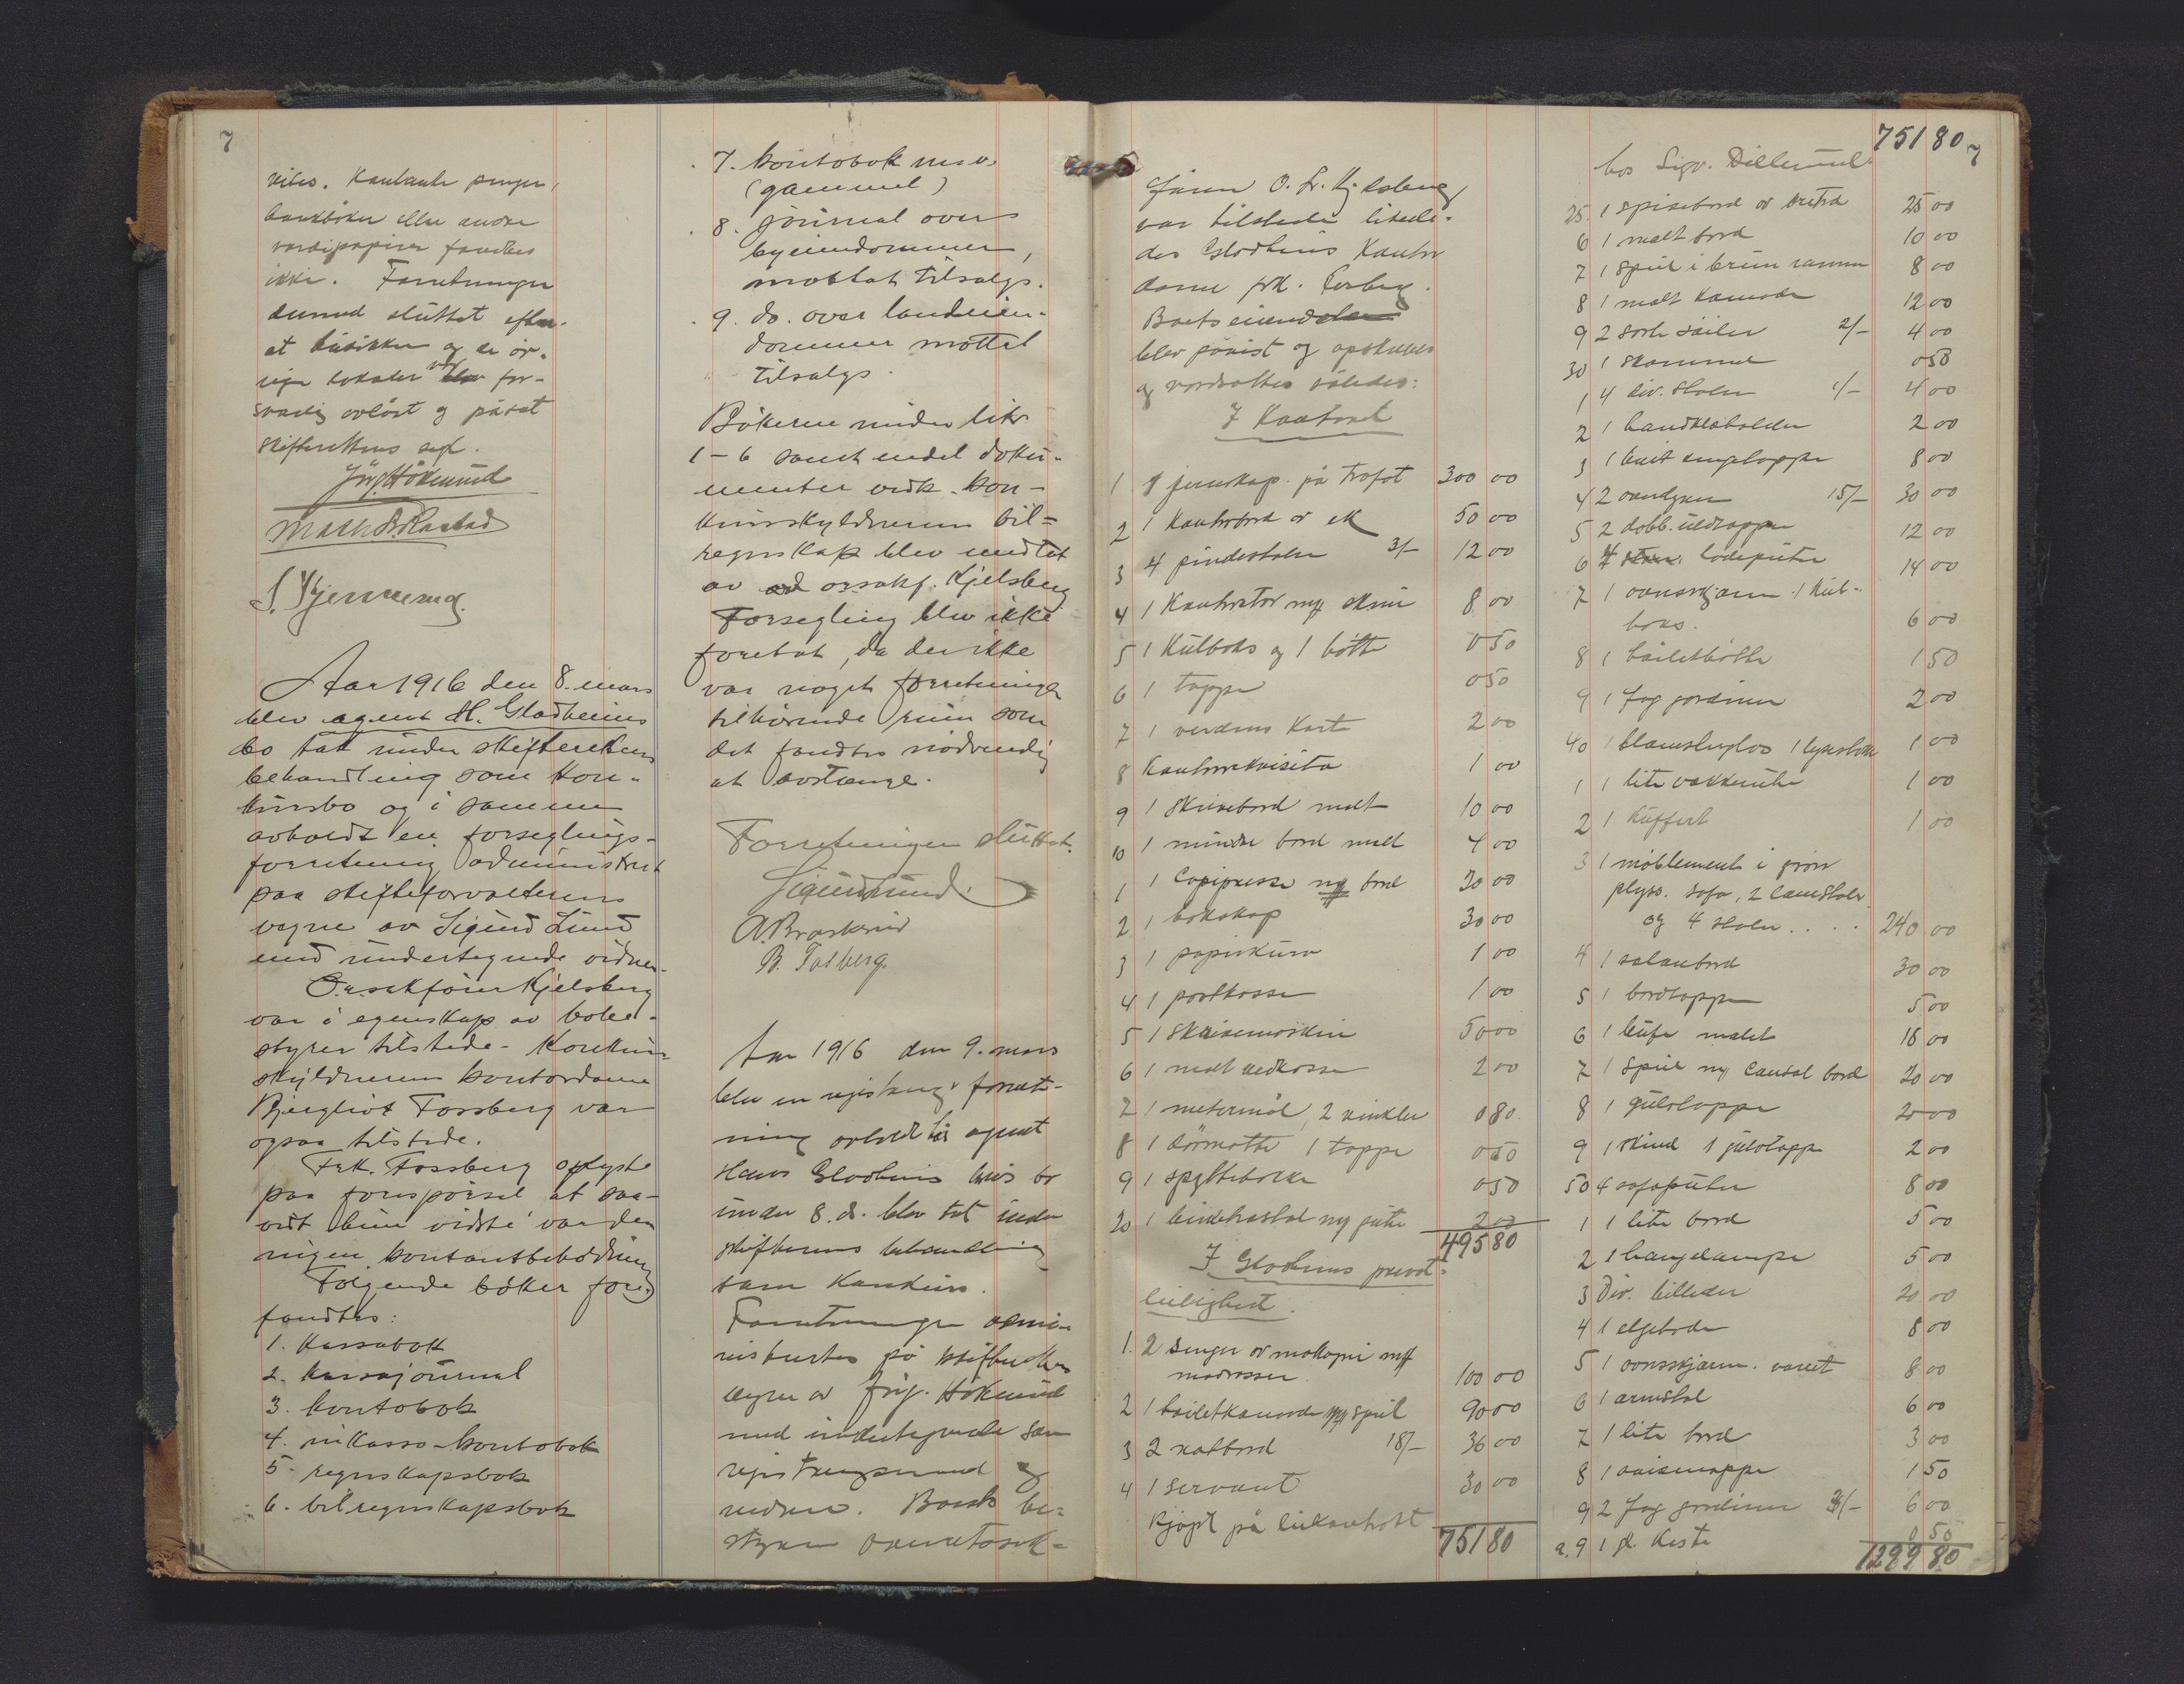 7
vites. Kontante penger,
bankbøker eller andre
værdipapirer fandtes
ikke. Forretningen
dermed sluttet efter-
at butikken og de øv-
rige lokaler var for-
svarlig avlåst og påsat
skifterettens segl.
Jørg. Høkerud
Math. B. Rastad
Aar 1916 den 8. mars
blev agent H. Gladheims
bo tat under skifterettens
behandling som kon-
kursbo og i samme
avholdt en forseglings-
forretning administrert
paa skifteforvalterens
vegne av Sigurd Lund
med undertegnede vidner.
O.r.sakfører Kjelsberg
var i egenskap av bobe-
styrer tilstede. Konkurs-
skyldnerens kontordame
Bjergliot Fossberg var
ogsaa tilstede.
Frk. Fossberg oplyste
paa forespørsel at saa-
vidt hun vidste var der
ingen kontantbeholdning
Følgende bøker fore-
fandtes:
1. Kassabok
2. kassajournal
3. kontobok
4. inkasso-kontobok
5. regnskapsbok
6. bilregnskapsbok
7. kontobok
(gammel)
8. journal over
byeiendommer,
mottat tilsalgs.
9. do. over landeien-
dommer mottat
tilsalgs.
Bøkerne under litr
1-6 samt endel doku-
menter vedk. kon-
kursskyldnerens bil-
regnskap blev medtat
av orsakf. Kjelsberg
Forsegling blev ikke
foretat, da der ikke
var noget forretningen
tilhørende rum som
det fandtes nødvendig
at avstænge.
Forretningen sluttet.
Sigurd Lund.
A. Braskerud
B. Fosberg.
Aar 1916 den 9. mars
blev en registrerings forret-
ning avholdt hos agent
Hans Gladheim hvis bo
under 8. ds. blev tat under
skifterettens behandling
som konkurs.
Forretningen admi-
nistrertes på skifterettens
vegne av Jørg. Høkerud
med undertegnede som
registreringsmænd og
vidner. Boets be-
styrer overretssak-
fører O. Fr. Kjelsberg
var tilstede likele-
des Gladheims kontor
dame frk. Fosberg.
Boets eiendeler
blev påvist og opskrevet
og værdsattes således:
I Kontoret
1 1 jernskap på trafot 300 00
2 1 Kontorbord av ek 50 00
3 4 pindestoler 3/- 12 00
4 1 Kontorstol m/ skin 8 00
5 1 Kulboks og 1 bøtte 0 50
6 1 teppe 0 50
7 1 verdens kart 2 00
8 Kontorrekvisita 1 00
9 1 skrivebord malt 10 00
10 1 mindre bord malt 4 00
1 1 Copipresse m/ bord 20 00
2 1 bokskap 30 00
3 1 papirkurv 1 00
4 1 postkasse 1 00
5 1 skrivemaskin 50 00
6 1 malt vedkasse 2 00
7 1 metermål, 2 vinkler 0 80
8 1 dørmatte 1 teppe 0 50
9 1 spyttebakke 0 50
20 1 birketræstol m/ pute 2 00
495 80
I Gladheims privat-
leilighet.
1. 2 senger av mahogni m/
madrasser. 100 00
2 1 toiletkommode m/ speil 90 00
3 2 natbord 18/- 36 00
4 1 servant 30 00
Kjøpt på leiekontrakt
751 80
751 80 7
hos Sigv. Dillerud
25. 1 spisebord av bretræ 25 00
6 1 malt bord 10 00
7 1 speil i brun ramme 8 00
8 1 malt komode 12 00
9 2 sorte søiler 2/- 4 00
30 1 skammel 0 50
1 4 div. stoler 1/- 4 00
2 1 handklæholder 2 00
3 1 hvit sengeteppe 8 00
4 2 15/- 30 00
5 2 dobb. uldtepper 12 00
6 4 hodeputer 14 00
7 1 ovnsskjærm 1 kul-
boks. 6 00
8 1 toiletbøtte 1 50
9 1 fag gardiner 2 00
40 1 1 00
1 1 lite vækkeuhr 1 00
2 1 Kuffert 1 00
3 1 møblement i grøn
plyss. Sofa, 2 lænestoler
og 4 stoler . . . . 240 00
4 1 salonbord 30 00
5 1 bordteppe 5 00
6 1 bufe malet 18 00
7 1 speil m/ consol bord 20 00
8 1 gulvteppe 20 00
9 1 skind 1 gulvteppe 2 00
50 4 sofaputer 8 00
1 1 lite bord 5 00
2 1 hængelampe 5 00
3 Div. billeder 20 00
4 1 elghode 8 00
5 1 ovnsskjærm. 8 00
6 1 armstol 6 00
7 1 lite bord 3 00
8 1 avismappe 1 50
9 2 fag gardiner 3/- 6 00
a.9 1 gl. Kiste 0 50
1299 80